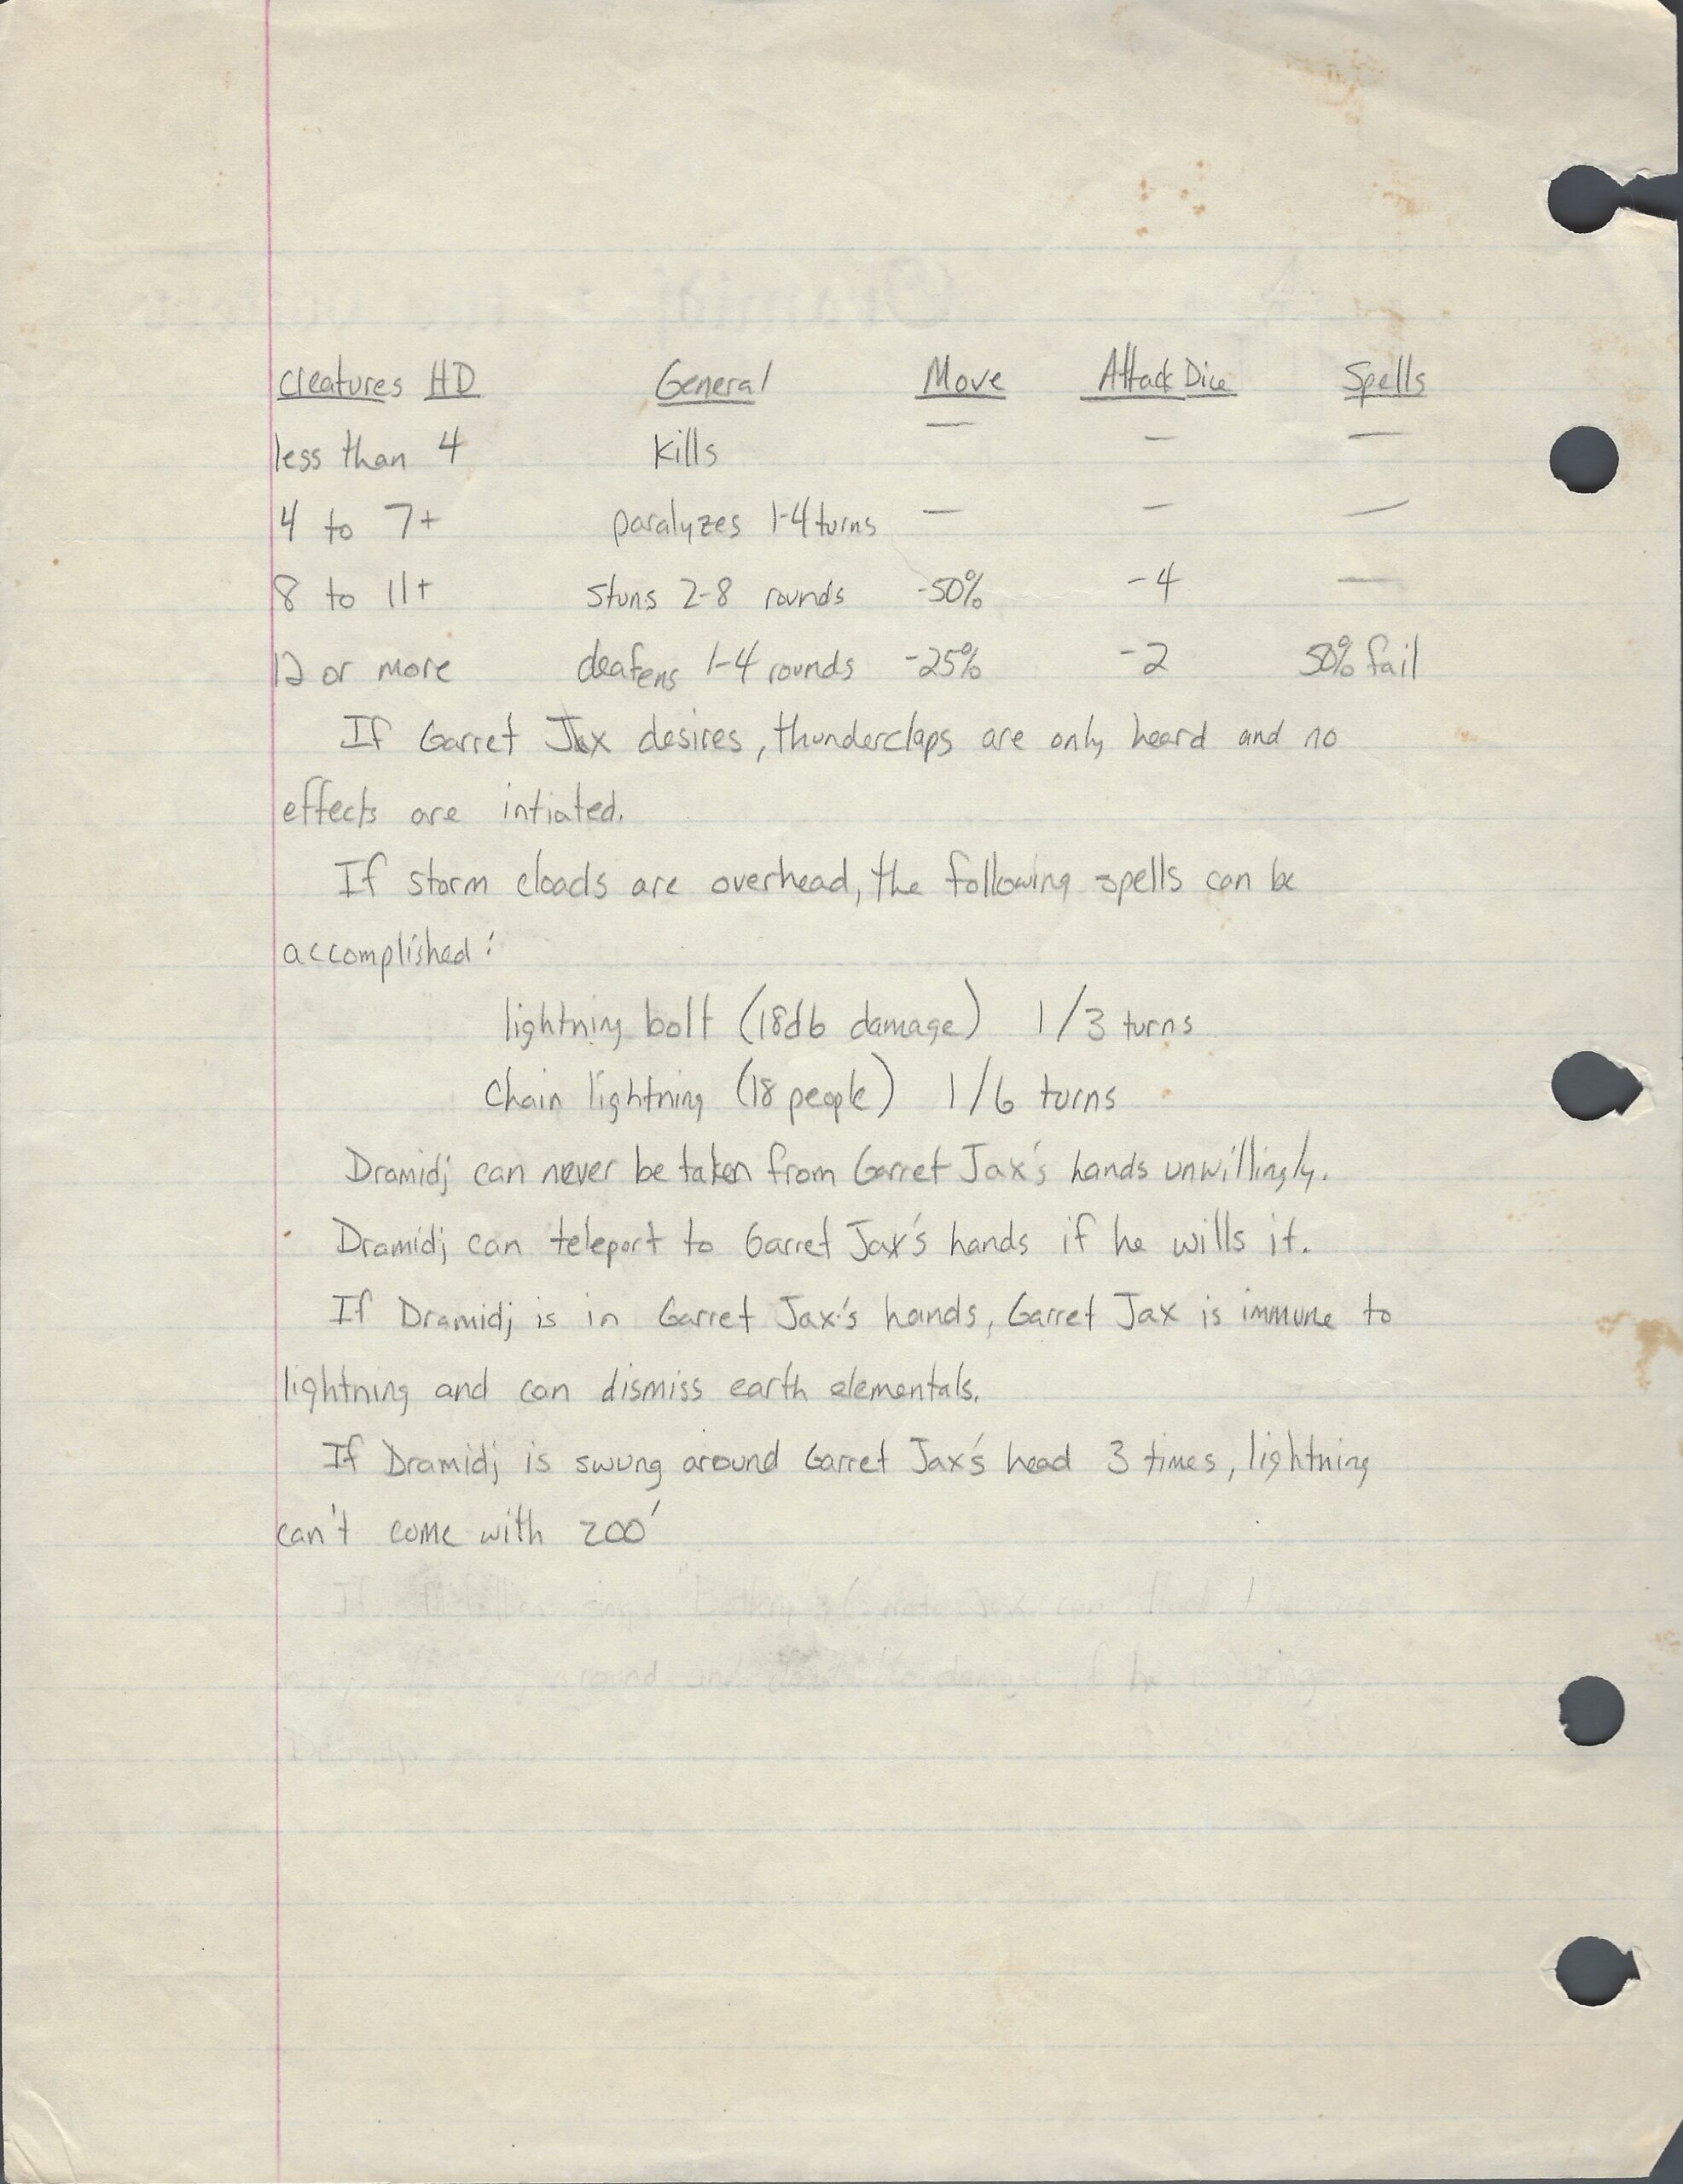 Creatures HD General Move Attack Dice Spells
less than 4 kills — — —
4 to 7+ paralyzes 1-4 turns — — —
8 to 11+ stuns 2-8 rounds -50% -4 —
12 or more deafens 1-4 rounds -25% -2 50% fail
If Garret Jax desires, thunderclaps are only heard and no
effects are intiated.
If storm clouds are overhead, the following spells can be
accomplished:
lightning bolt (18d6 damage) 1/3 turns
Chain lightning (18 people) 1/6 turns
Dramidj can never be taken from Garret Jax's hands unwillingly.
Dramidj can teleport to Garret Jax's hands if he wills it.
If Dramidj is in Garret Jax's hands, Garret Jax is immune to
lightning and can dismiss earth elementals.
If Dramidj is swung around Garret Jax's head 3 times, lightning
can't come with 200'